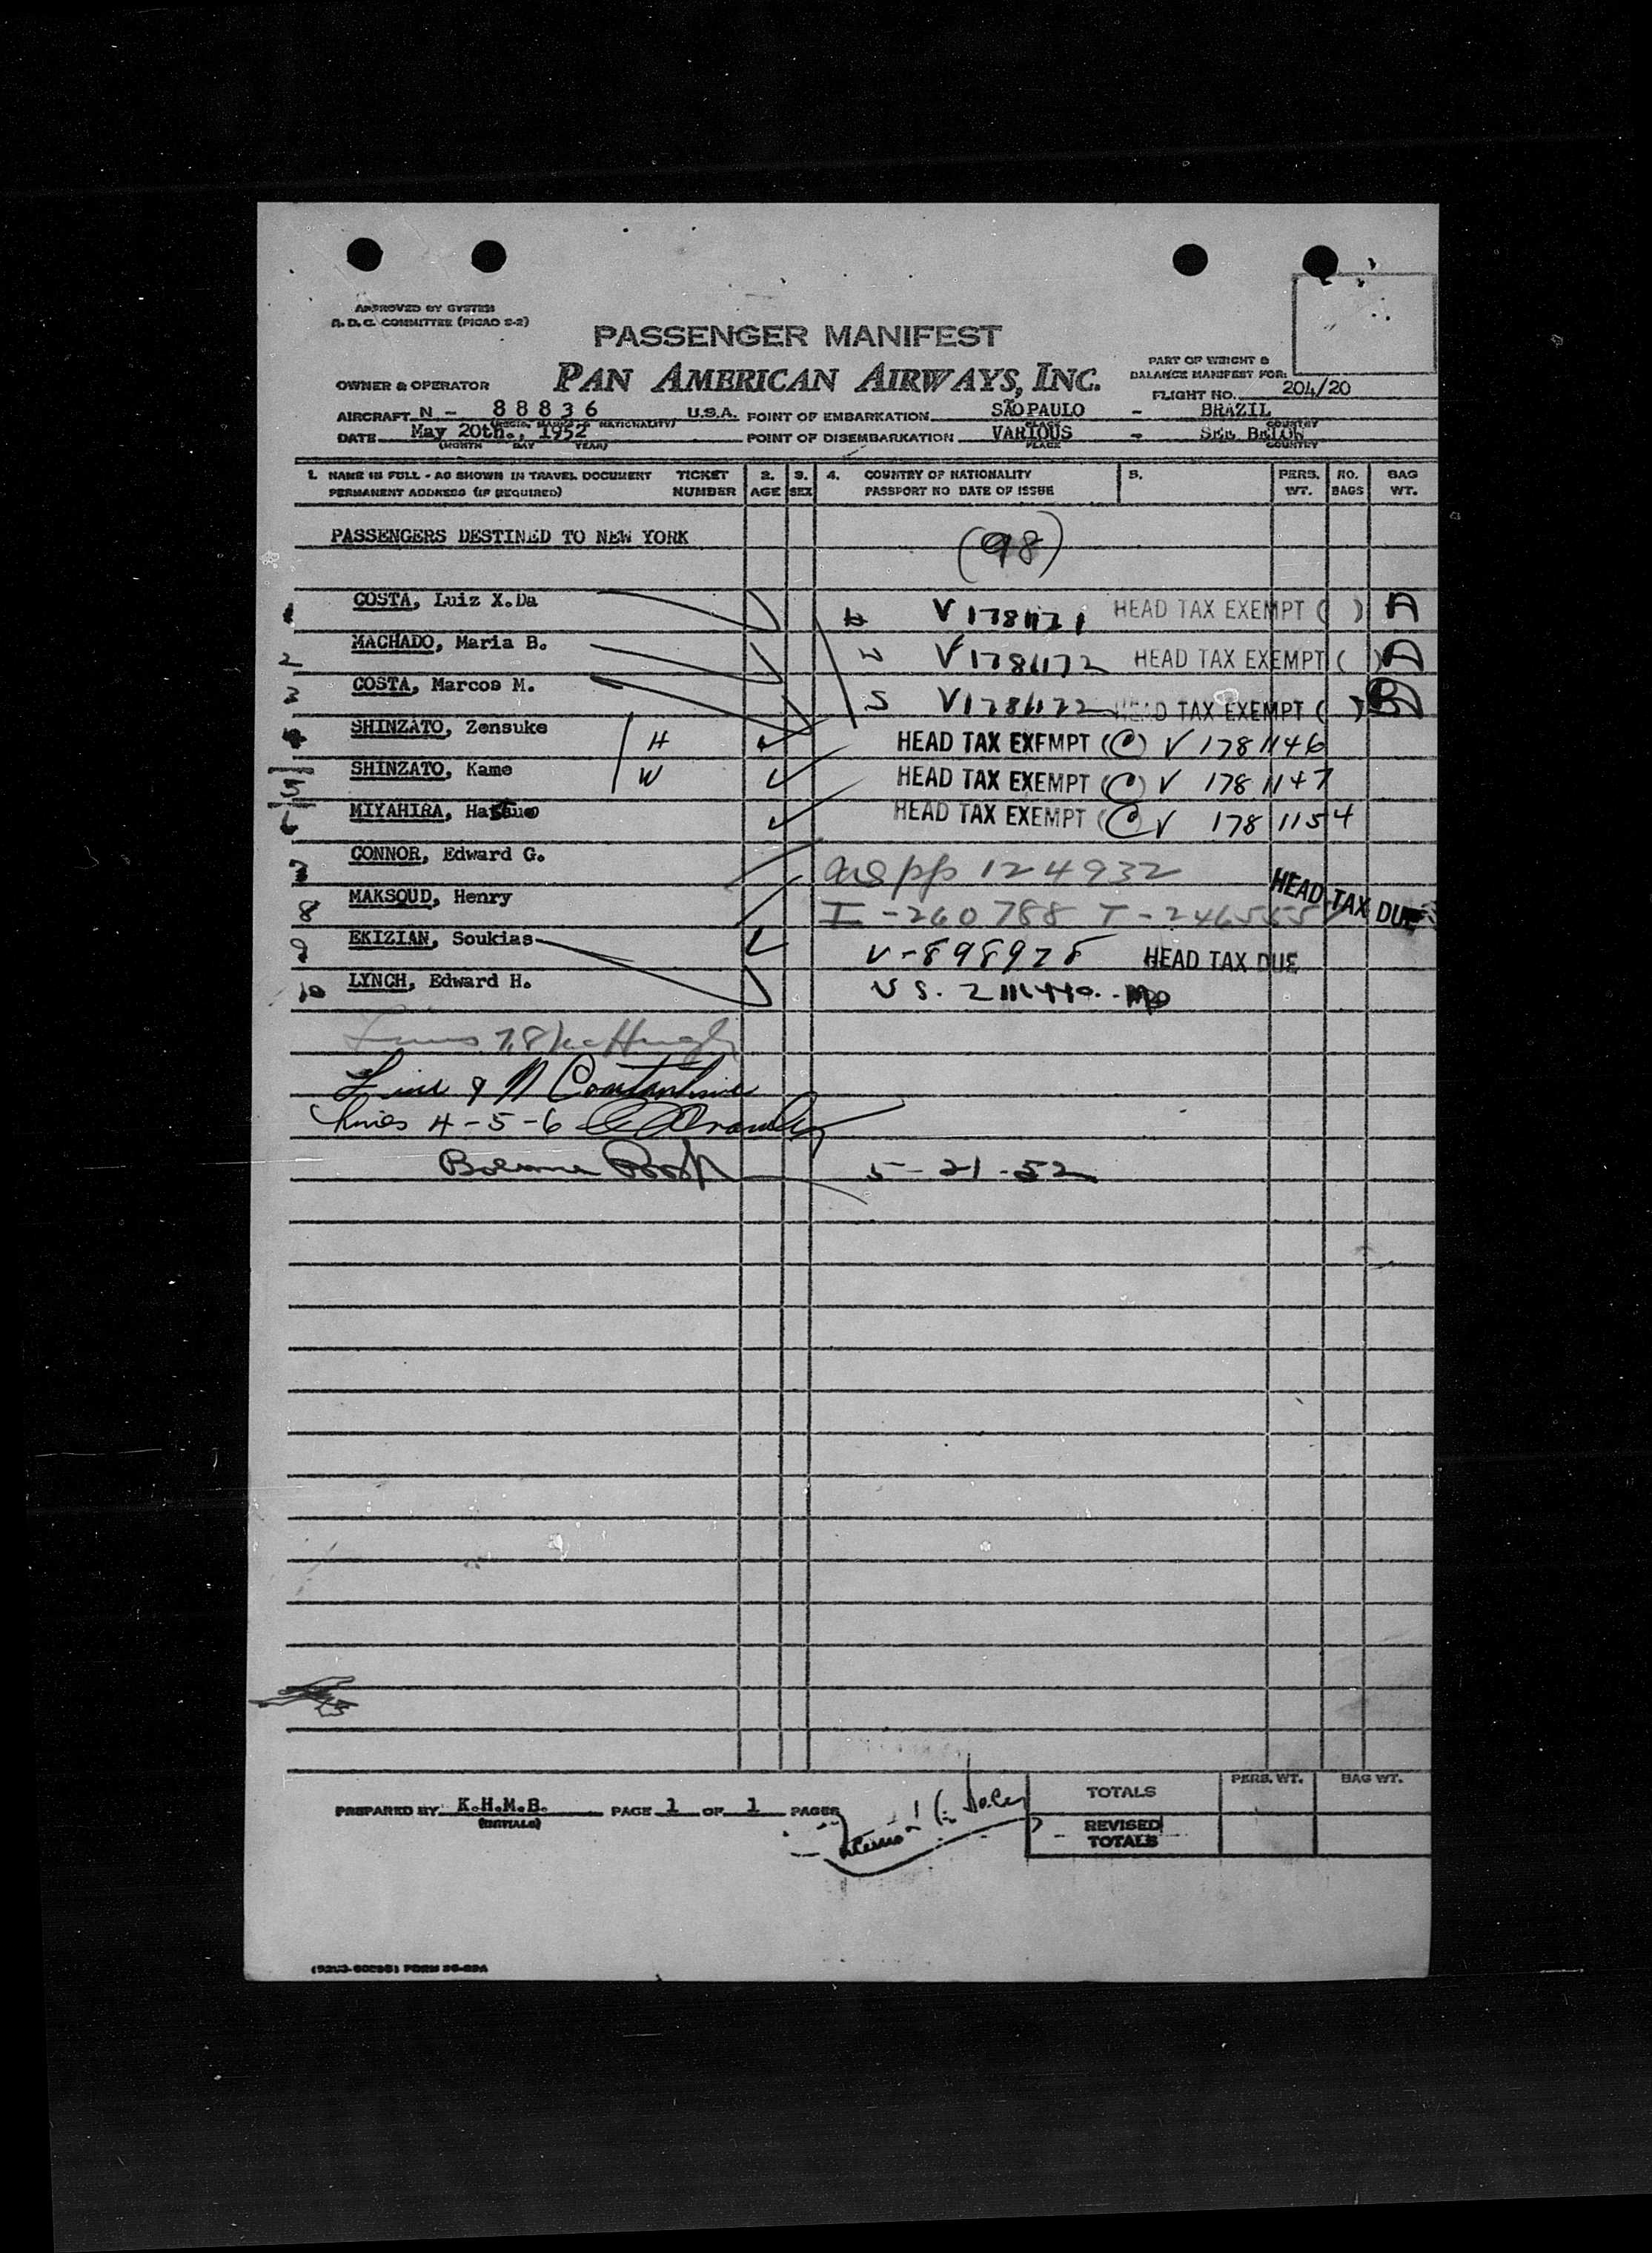 APPROVED BY SYSTEM
A. D. C. COMMITTEE (PICAO S-2)
PASSENGER MANIFEST
PAN AMERICAN AIRWAYS, INC.
PART OF WEIGHT &
BALANCE MANIFEST FOR:
OWNER & OPERATOR
FLIGHT NO. 204/20
AIRCRAFT N - 88836 U.S.A. POINT OF EMBARKATION SÃO PAULO - BRAZIL
(REGIS. MARKS & NATIONALITY) PLACE COUNTRY
DATE May 20th., 1952 POINT OF DISEMBARKATION VARIOUS - SEE BELOW
(MONTH DAY YEAR) PLACE COUNTRY
1. NAME IN FULL - AS SHOWN IN TRAVEL DOCUMENT TICKET 2. 3. 4. COUNTRY OF NATIONALITY 5. PERS. NO. BAG
PERMANENT ADDRESS (IF REQUIRED) NUMBER AGE SEX PASSPORT NO DATE OF ISSUE WT. BAGS WT.
PASSENGERS DESTINED TO NEW YORK (98)
1 COSTA, Luiz X.Da H V HEAD TAX EXEMPT ( ) A
2 MACHADO, Maria B. W V HEAD TAX EXEMPT ( ) A
3 COSTA, Marcos M. S V HEAD TAX EXEMPT ( )
4 SHINZATO, Zensuke H HEAD TAX EXEMPT (C) V 1781146
5 SHINZATO, Kame W HEAD TAX EXEMPT (C) V 1781147
6 MIYAHIRA, HEAD TAX EXEMPT (C) V 1781154
7 CONNOR, Edward G. pp 124932
8 MAKSOUD, Henry I-260788 HEAD TAX DUE
9 EKIZIAN, Soukias V-898928 HEAD TAX DUE
10 LYNCH, Edward H. US.
Lines 7,8
Line 9 N Constantine
Lines 4-5-6
5-21-52
PREPARED BY K.H.M.B. PAGE 1 OF 1 PAGES
(INITIALS)
TOTALS PERS. WT. BAG WT.
REVISED
TOTALS